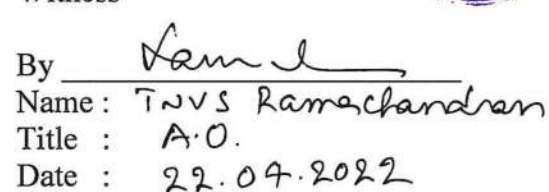 Witness
By
Name : TNVS Ramachandran
Title : A.O.
Date : 22.04.2022